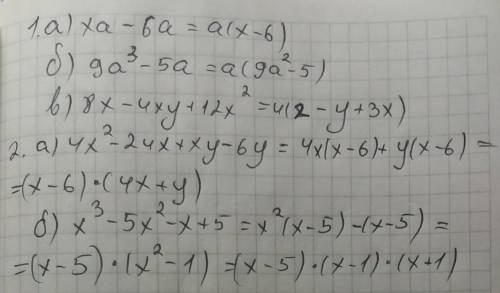 1. а) xa - 6a = a(x-6)
б) 9a³ - 5a = a(9a² - 5)
в) 8x - 4xy + 12x² = 4(2 - y + 3x)
2. а) 4x² - 24x + xy - 6y = 4x(x-6) + y(x-6) =
= (x-6) · (4x+y)
б) x³ - 5x² - x + 5 = x²(x-5) - (x-5) =
= (x-5) · (x² - 1) = (x-5) · (x-1) · (x+1)